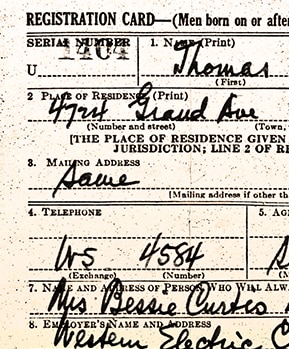 REGISTRATION CARD—(Men born on or after
SERIAL NUMBER 1. NAME (Print)
1464
U Thomas
(First)
2 PLACE OF RESIDENCE (Print)
4724 Grand Ave
(Number and street) (Town,
[THE PLACE OF RESIDENCE GIVEN
JURISDICTION; LINE 2 OF RE
3. MAILING ADDRESS
Same
[Mailing address if other th
4. TELEPHONE 5. AG
4584
(Exchange) (Number)
7. NAME AND ADDRESS OF PERSON WHO WILL ALW
Mrs Bessie Curtis
8. EMPLOYER'S NAME AND ADDRESS
Western Electric C